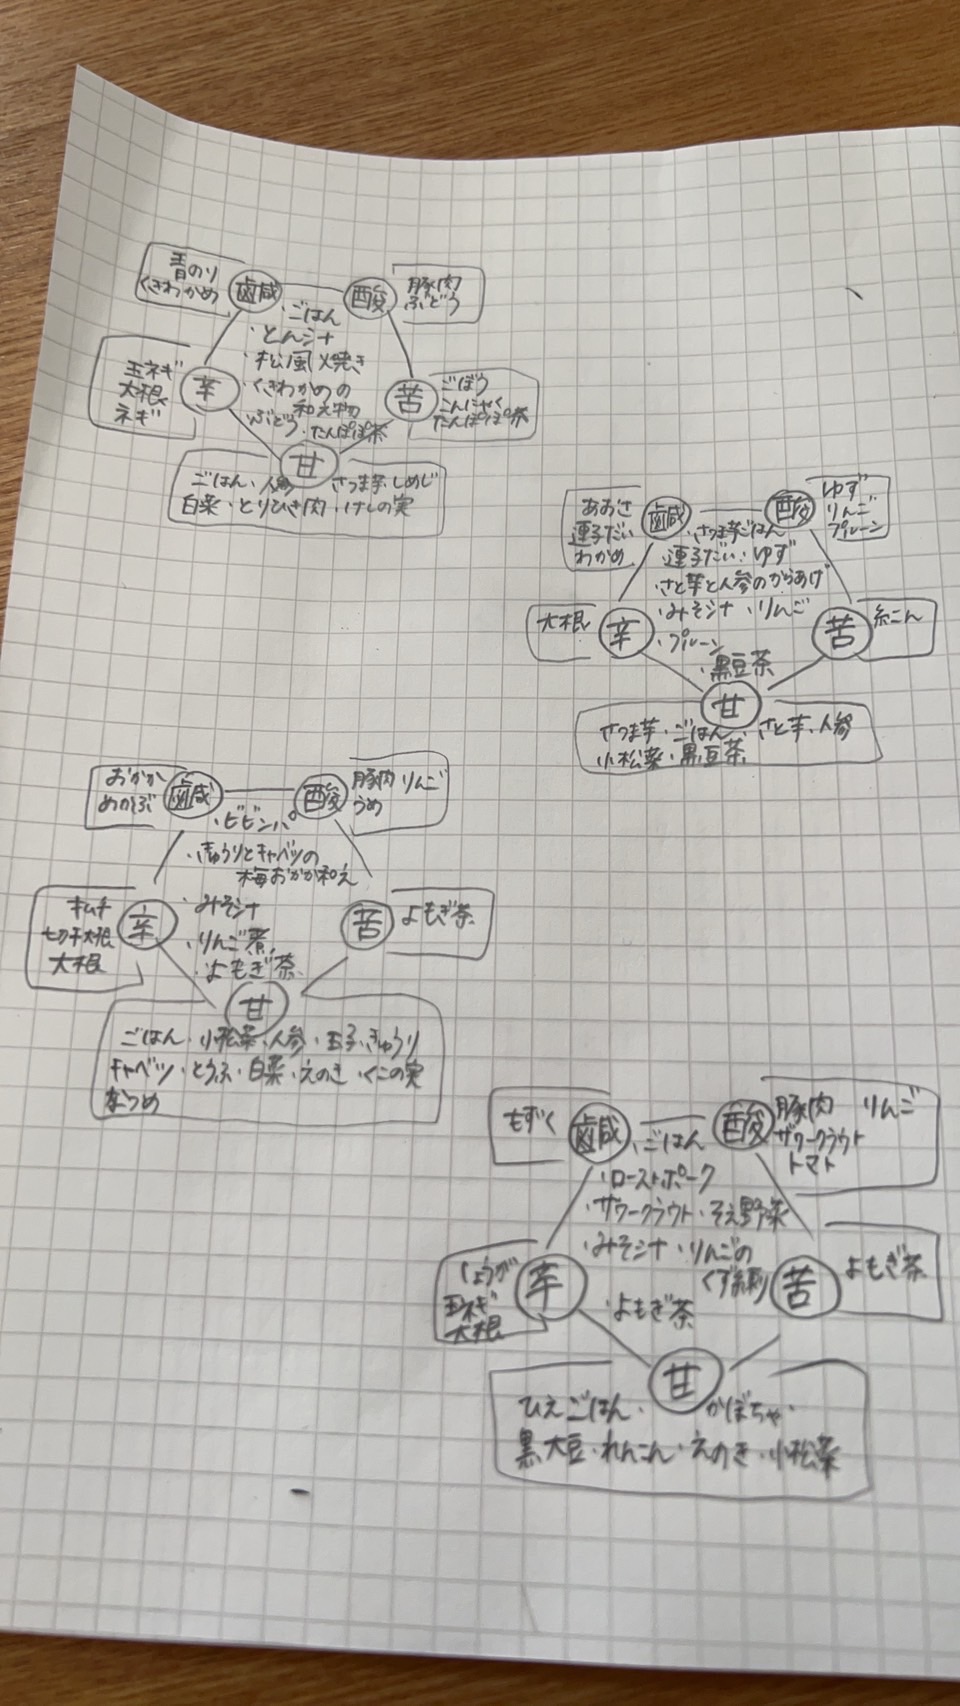 青のり
くきわかめ
鹹
酸
豚肉
ぶどう
・ごはん
・とん汁
・松風焼き
・くきわかめの
和え物
ぶどう・たんぽぽ茶
玉ネギ
大根
ネギ
辛
苦
ごぼう
こんにゃく
たんぽぽ茶
甘
ごはん・人参 さつま芋・しめじ
白菜・とりひき肉・けしの実
あおさ
連子だい
わかめ
鹹
酸
ゆず
りんご
プルーン
・さつま芋ごはん
連子だい・ゆず
・さと芋と人参のからあげ
・みそ汁・りんご
・プルーン
・黒豆茶
大根
辛
苦
糸こん
甘
さつま芋・ごはん・さと芋・人参
小松菜・黒豆茶
おかか
めかぶ
鹹
酸
豚肉 りんご
うめ
・ビビンバ
・きゅうりとキャベツの
梅おかか和え
・みそ汁
・りんご煮
・よもぎ茶
キムチ
切干大根
大根
辛
苦
よもぎ茶
甘
ごはん・小松菜・人参・玉子・きゅうり
キャベツ・とうふ・白菜・えのき・くこの実
なつめ
もずく
鹹
酸
豚肉 りんご
ザワークラウト
トマト
・ごはん
・ローストポーク
・ザワークラウト・そえ野菜
・みそ汁・りんごの
くず煮
・よもぎ茶
しょうが
玉ネギ
大根
辛
苦
よもぎ茶
甘
ひえごはん・かぼちゃ・
黒大豆・れんこん・えのき・小松菜